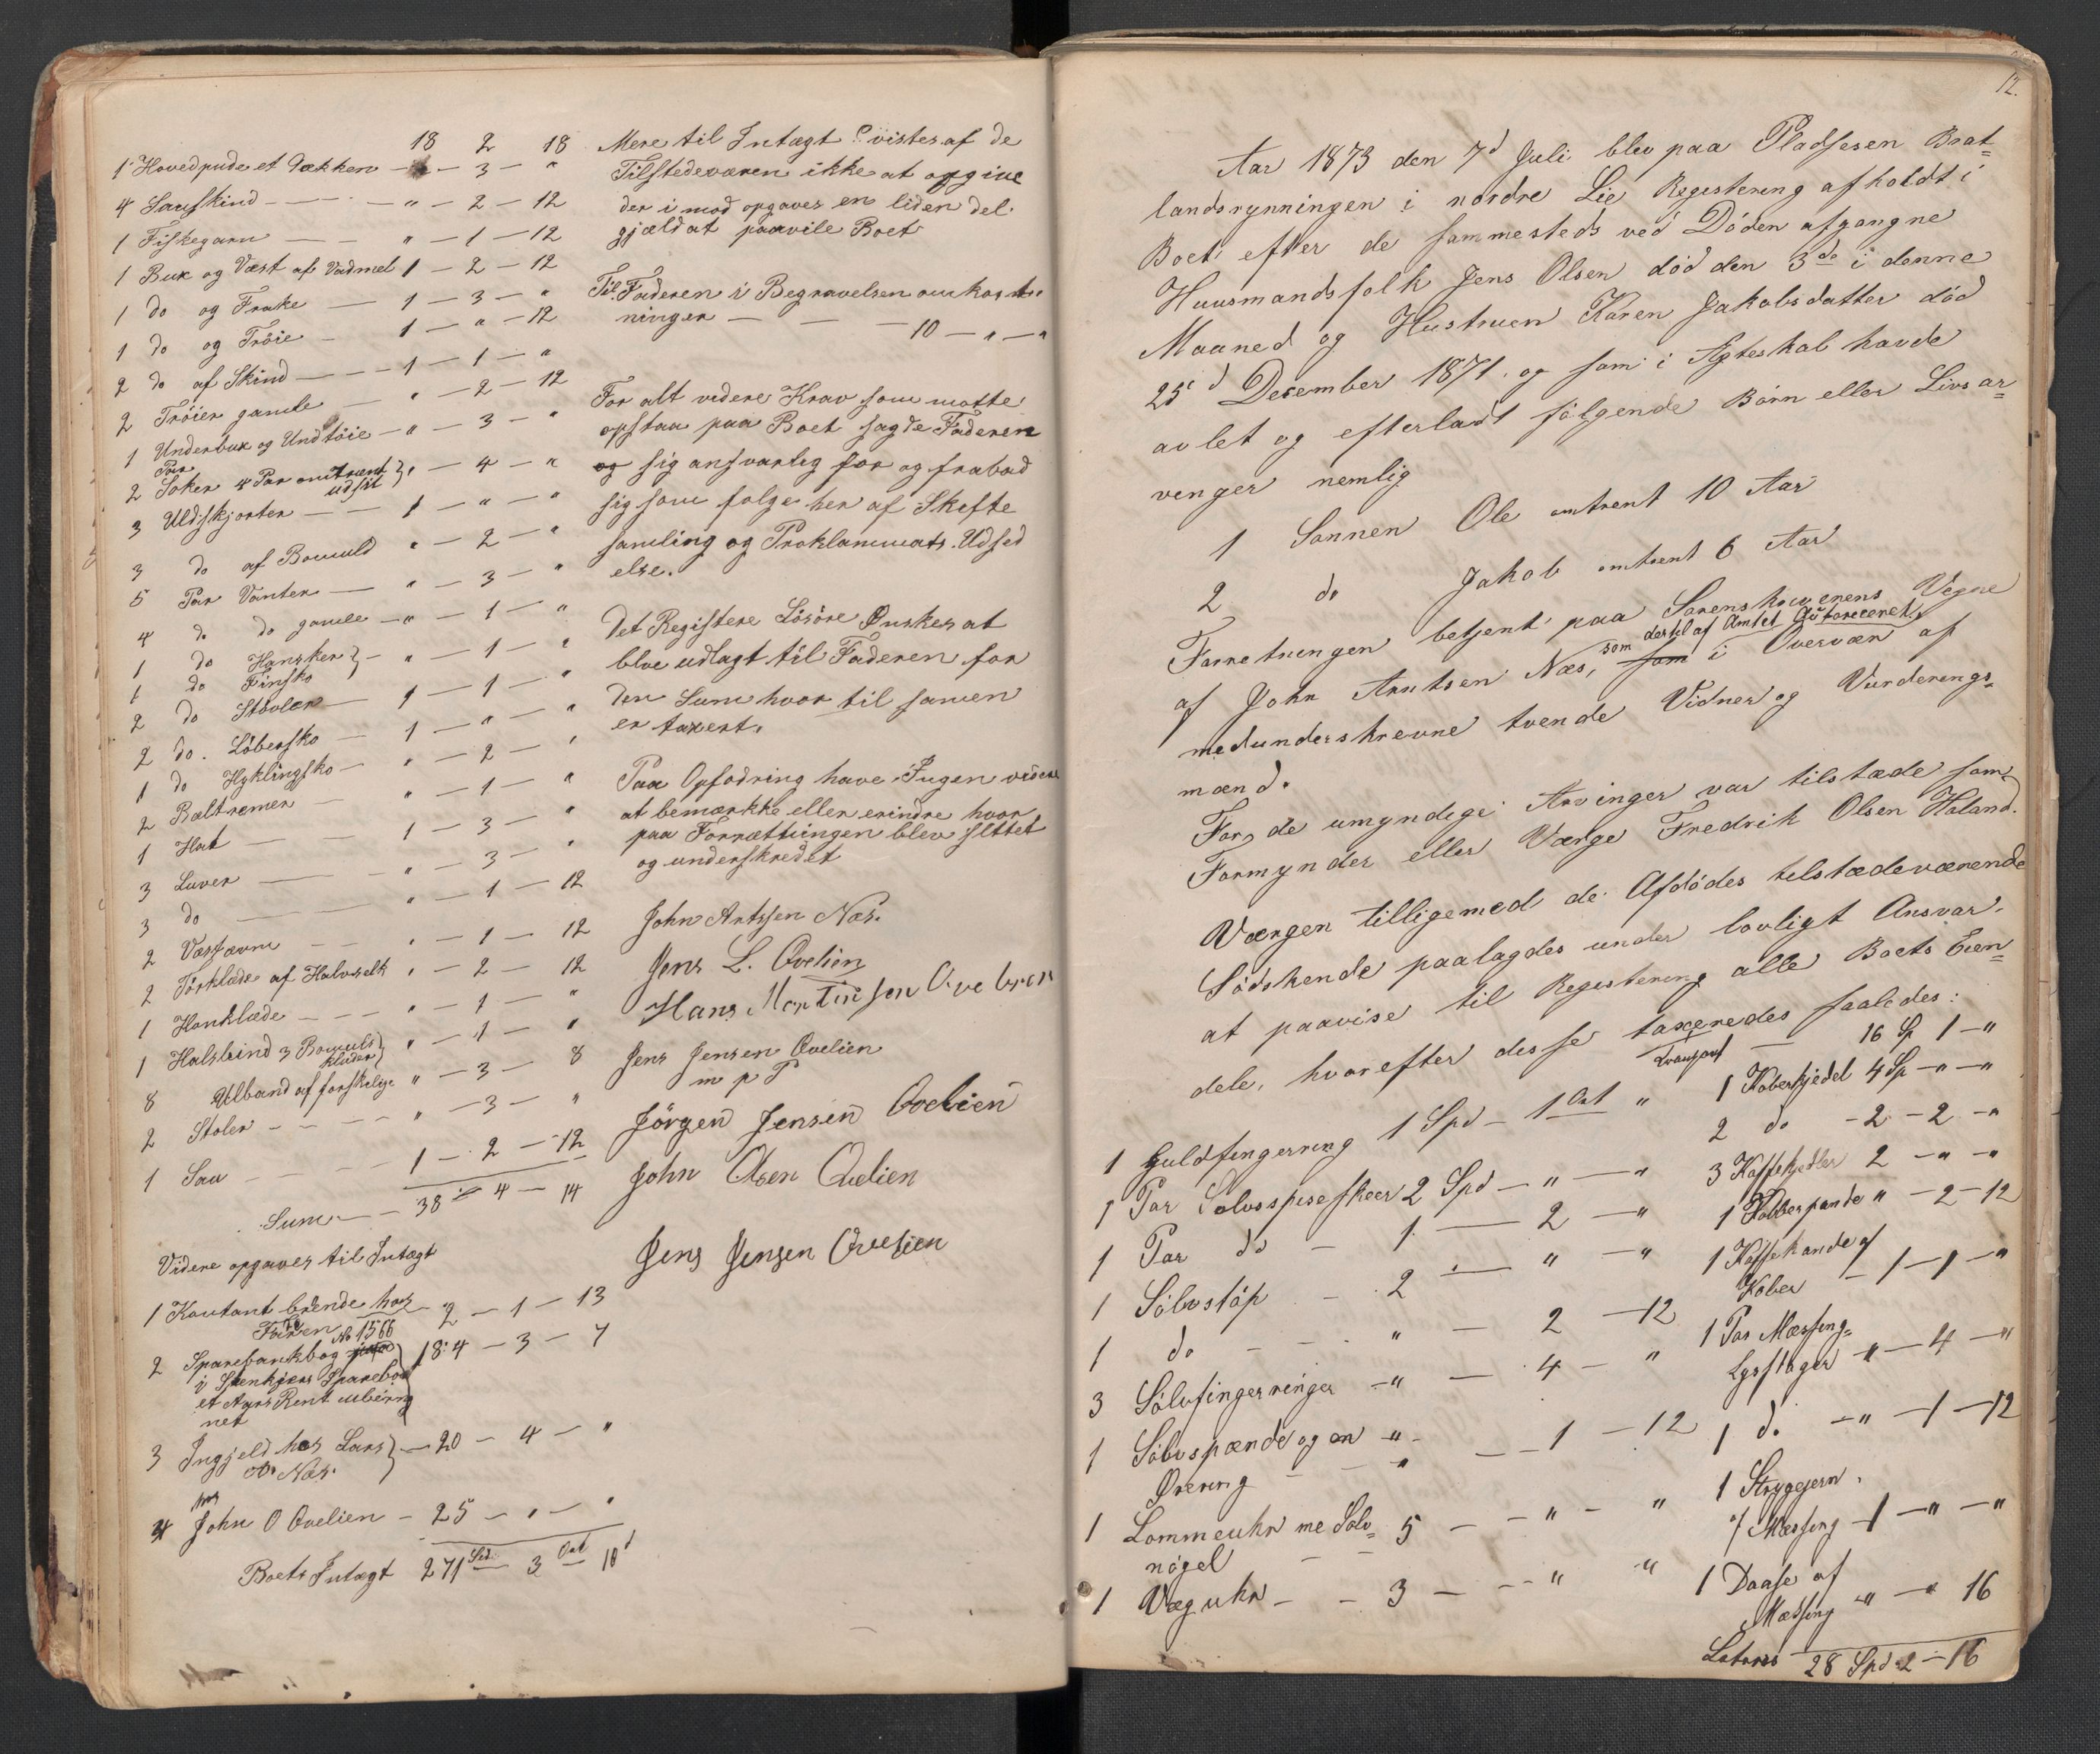 18 2 18
1 Hovedpude et Dækken - " - 3 - "
4 Saueskind - " - 2 - 12
1 Fiskegarn " - 1 - 12
1 Bux og Væst af Vadmel 1 - 2 - 12
1 do og Frake 1 - 3 - "
1 do og Tröie 1 - " - 12
2 do af Skind 1 - 1 - "
2 Tröier gamle " - 2 - 12
1 Underbux og Undtöie - " - 3 - "
2 Par Soker 4 Par omtrent udslit } " - 4 - "
3 Uldskjorter 1 - " - "
3 do af Bomuld " - 2 - "
5 Par Vanter " - 3 - "
4 do do gamle - " - 1 - "
1 do Hansker } " - 1 - "
1 do Finsko
2 do Stövler 1 - 1 - "
2 do. Löbersko 1 - " - "
1 do Hyklingsko " - 2 - "
2 Bæltremer " - 1 - "
1 Hat 1 - 3 - "
3 Luver " - 3 - "
3 do " - 1 - 12
2 Væstævne " - 1 - 12
2 Törklæde af Halvselk " - 2 - 12
1 Hanklæde " - 1 - "
1 Halsbind 3 Bomuls kluder } " - 1 - "
8 Ulband af forskelige " - 3 - 8
2 Stoler " - 3 - "
1 Sau 1 - 2 - 12
Sum 38 - 4 - 14
Videre opgaves til Intægt
1 Kontant hos
Faderen 2 - 1 - 13
2 Sparebankbog No 1566 184 - 3 - 7
i Stenkjær Sparebø
et Aars Rent uberø
net
3 Ingjeld hos Lars } 20 - 4 - "
Næs.
4 hos John O Ovelien - 25 - " - "
Boets Intægt 271 Spd - 3 Ort 10 d
Mere til Intægt vistes af de
Tilstedeværen ikke at opgive
der i mod opgaves en liden del
gjæld at paavile Boet
Til Faderen i Begravelsen omkost
ninger 10 - " - "
For alt vedere Krav som motte
opstaa paa Boet sagde Faderen
og sig ansvarlig for og frabad
sig som følge her af Skefte
samling og Proklammats Udsed
else.
Det Registere Lösöre Ønskes at
blve udlagt til Faderen for
den Sum hvor til samen
er taxert.
Paa Opfodring have Ingen videre
at bemærkke eller erindre hvor
paa Forrættningen blev slttet
og underskredet
John Artssen Næs.
Jens L. Ovelien
Hans Martinsen
Jens Jensen Ovelien
m p P
Jörgen Jensen Ovelien
John Olsen Ovelien
Jens Jensen Ovelien
12.
Aar 1873 den 7d Juli blev paa Pladsesen Brat=
landsrynningen i nordre Lie Registering afholdt i
Boet efter de sammesteds ved Döden afgangne
Huusmandsfolk Jens Olsen död den 3de i denne
Maaned og Hustruen Karen Jakobsdatter död
25d Desember 1871. og som i Ægteskab havde
avlet og efterladt fölgende Börn eller Livsar=
venger nemlig
1 Sönnen Ole omtrent 10 Aar
2 do Jakob omtrent 6 Aar
Forretningen betjent paa Sorenskriverens Vegne
af John Arntsen Næs, som dertil af Amtet Autoriceret. i Overvær af
medunderskrevne tvende Vidner og Vurderings=
mænd.
For de umyndige Arvinger var tilstæde som
Formynder eller Værge Fredrik Olsen Haland.
Værgen tilligemed de Afdödes telstædeværende
Södskende paalagdes under lovligt Ansvar
at paavise til Registering alle Boets Eien=
dele, hvorefter desse taxeredes saaledes:
1 Guldfingerring 1 Spd - 1 Ort "
1 Par Sölvspiseskeer 2 Spd - " - "
1 Par do - 1 - 2 - "
1 Sölvstöp - 2 - " - "
1 do - " - 2 - 12
3 Sölvfingerringer - " - 4 - "
1 Sölvspænde og en - " - 1 - 12
Ørering
1 Lommeuhr me Sölv= 5 - " - "
nögel
1 Væguhr - 3 - " "
Transport 16 Sp 1 - "
1 Koberkjedel 4 Sp - " - "
2 do - 2 - 2 - "
3 Kaffekjedler 2 - " - "
1 Kobberpande " - 2 - 12
1 Kaffekande af
Kober - 1 - 1 - "
1 Par Messing=
Lysstager - " - 4 - "
1 do - " - 1 - 12
1 Strygejern
af Messing - 1 - " - "
1 Daase af
Messing " - " 16
Latores 28 Spd 2 - 16